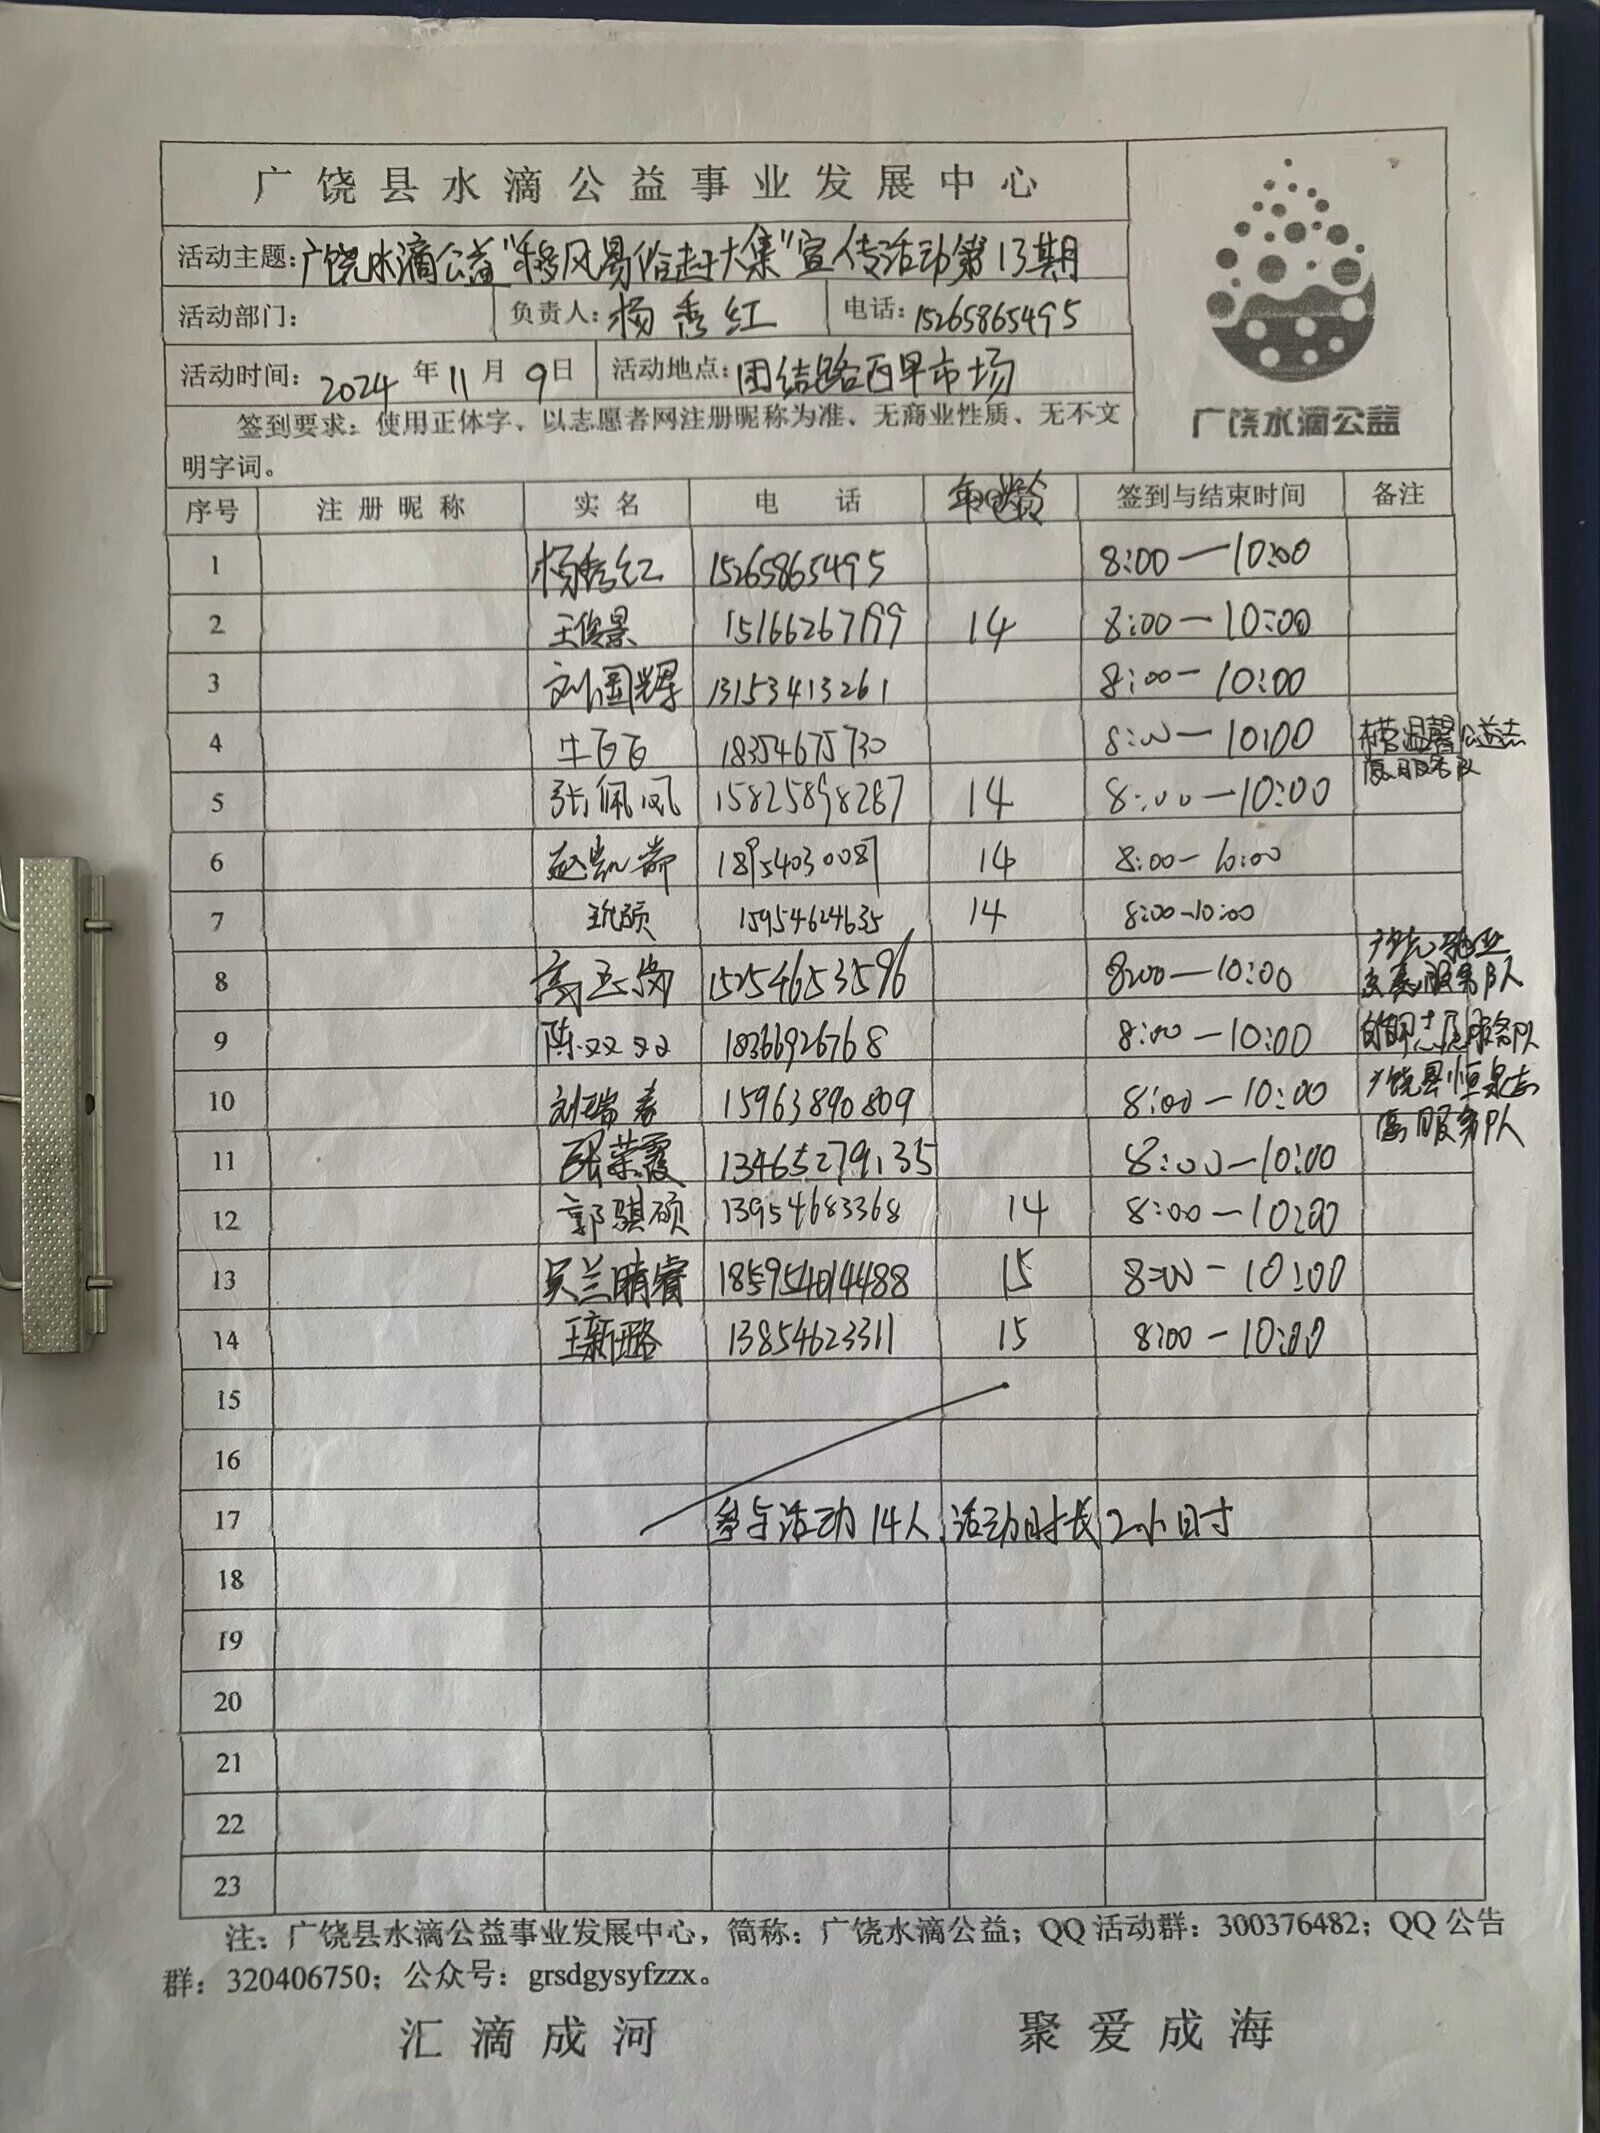 广饶县水滴公益事业发展中心
活动主题:广饶水滴公益“移风易俗赶大集”宣传活动第13期
活动部门: 负责人:杨秀红 电话:15265865495
活动时间:2024年11月9日 活动地点:团结路西早市场
签到要求:使用正体字、以志愿者网注册昵称为准、无商业性质、无不文
明字词。
广饶水滴公益
序号 注册昵称 实名 电话 年龄 签到与结束时间 备注
1 杨秀红 15265865495 8:00—10:00
2 王俊景 15166267199 14 8:00—10:00
3 刘国辉 13153413261 8:00—10:00
4 牛百百 18354675730 8:00—10:00 温馨公益志
愿服务队
5 张佩凤 15825898287 14 8:00—10:00
6 赵凯 18954030087 14 8:00—10:00
7 硕 15954624635 14 8:00-10:00
8 高 15254653596 8:00—10:00 服务队
9 陈双双 18366926768 8:00—10:00 志愿服务队
10 刘瑞春 15963890809 8:00—10:00 广饶县恒泉志
愿服务队
11 张荣霞 13465279135 8:00—10:00
12 郭骐硕 13954683368 14 8:00—10:00
13 兰晴睿 185954014488 15 8:00—10:00
14 王新璐 13854623311 15 8:00—10:00
15
16
17 参与活动14人,活动时长2小时
18
19
20
21
22
23
注:广饶县水滴公益事业发展中心,简称:广饶水滴公益;QQ活动群:300376482;QQ公告
群:320406750;公众号:grsdgysyfzzx。
汇滴成河 聚爱成海